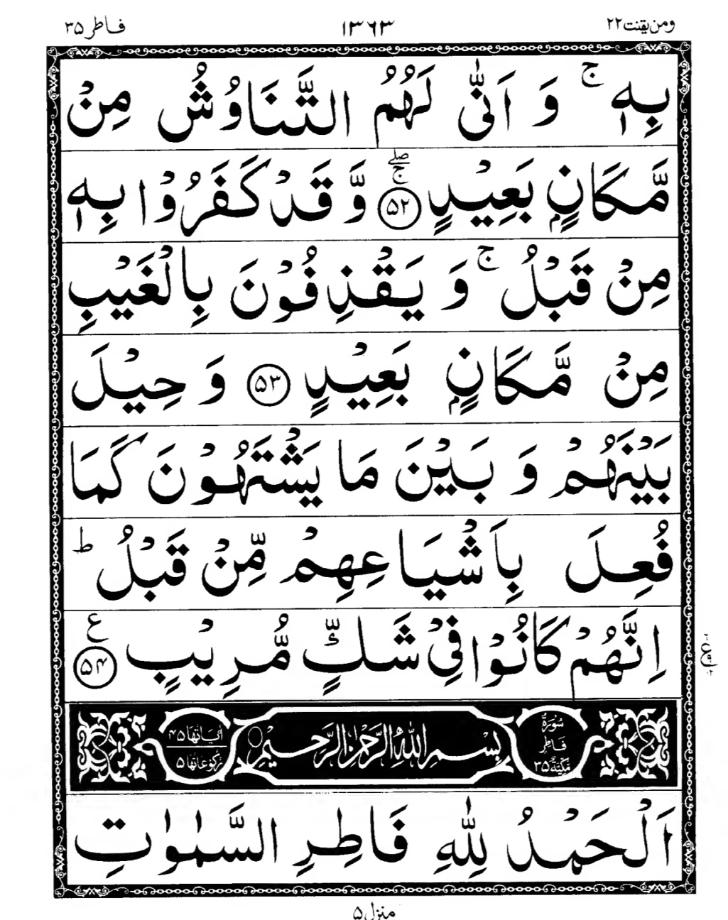 ومن یقنت ۲۲ ۱۳۶۳ فاطر ۳۵
بِهٖ ۚ وَ اَنّٰى لَهُمُ التَّنَاوُشُ مِنْ
مَّكَانٍۭ بَعِیْدٍ ۵۲ ۚۖ وَّ قَدْ كَفَرُوْا بِهٖ
مِنْ قَبْلُ ۚ وَ یَقْذِفُوْنَ بِالْغَیْبِ
مِنْ مَّكَانٍۭ بَعِیْدٍ ۵۳ وَ حِیْلَ
بَیْنَهُمْ وَ بَیْنَ مَا یَشْتَهُوْنَ كَمَا
فُعِلَ بِاَشْیَاعِهِمْ مِّنْ قَبْلُ ؕ
اِنَّهُمْ كَانُوْا فِیْ شَكٍّ مُّرِیْبٍ ۵۴ ع
سُوْرَةُ فَاطِرٍ مَكِّیَّةٌ ۳۵ بِسْمِ اللّٰهِ الرَّحْمٰنِ الرَّحِیْمِ اٰیَاتُهَا ۴۵ رُكُوْعَاتُهَا ۵
اَلْحَمْدُ لِلّٰهِ فَاطِرِ السَّمٰوٰتِ
منزل ۵